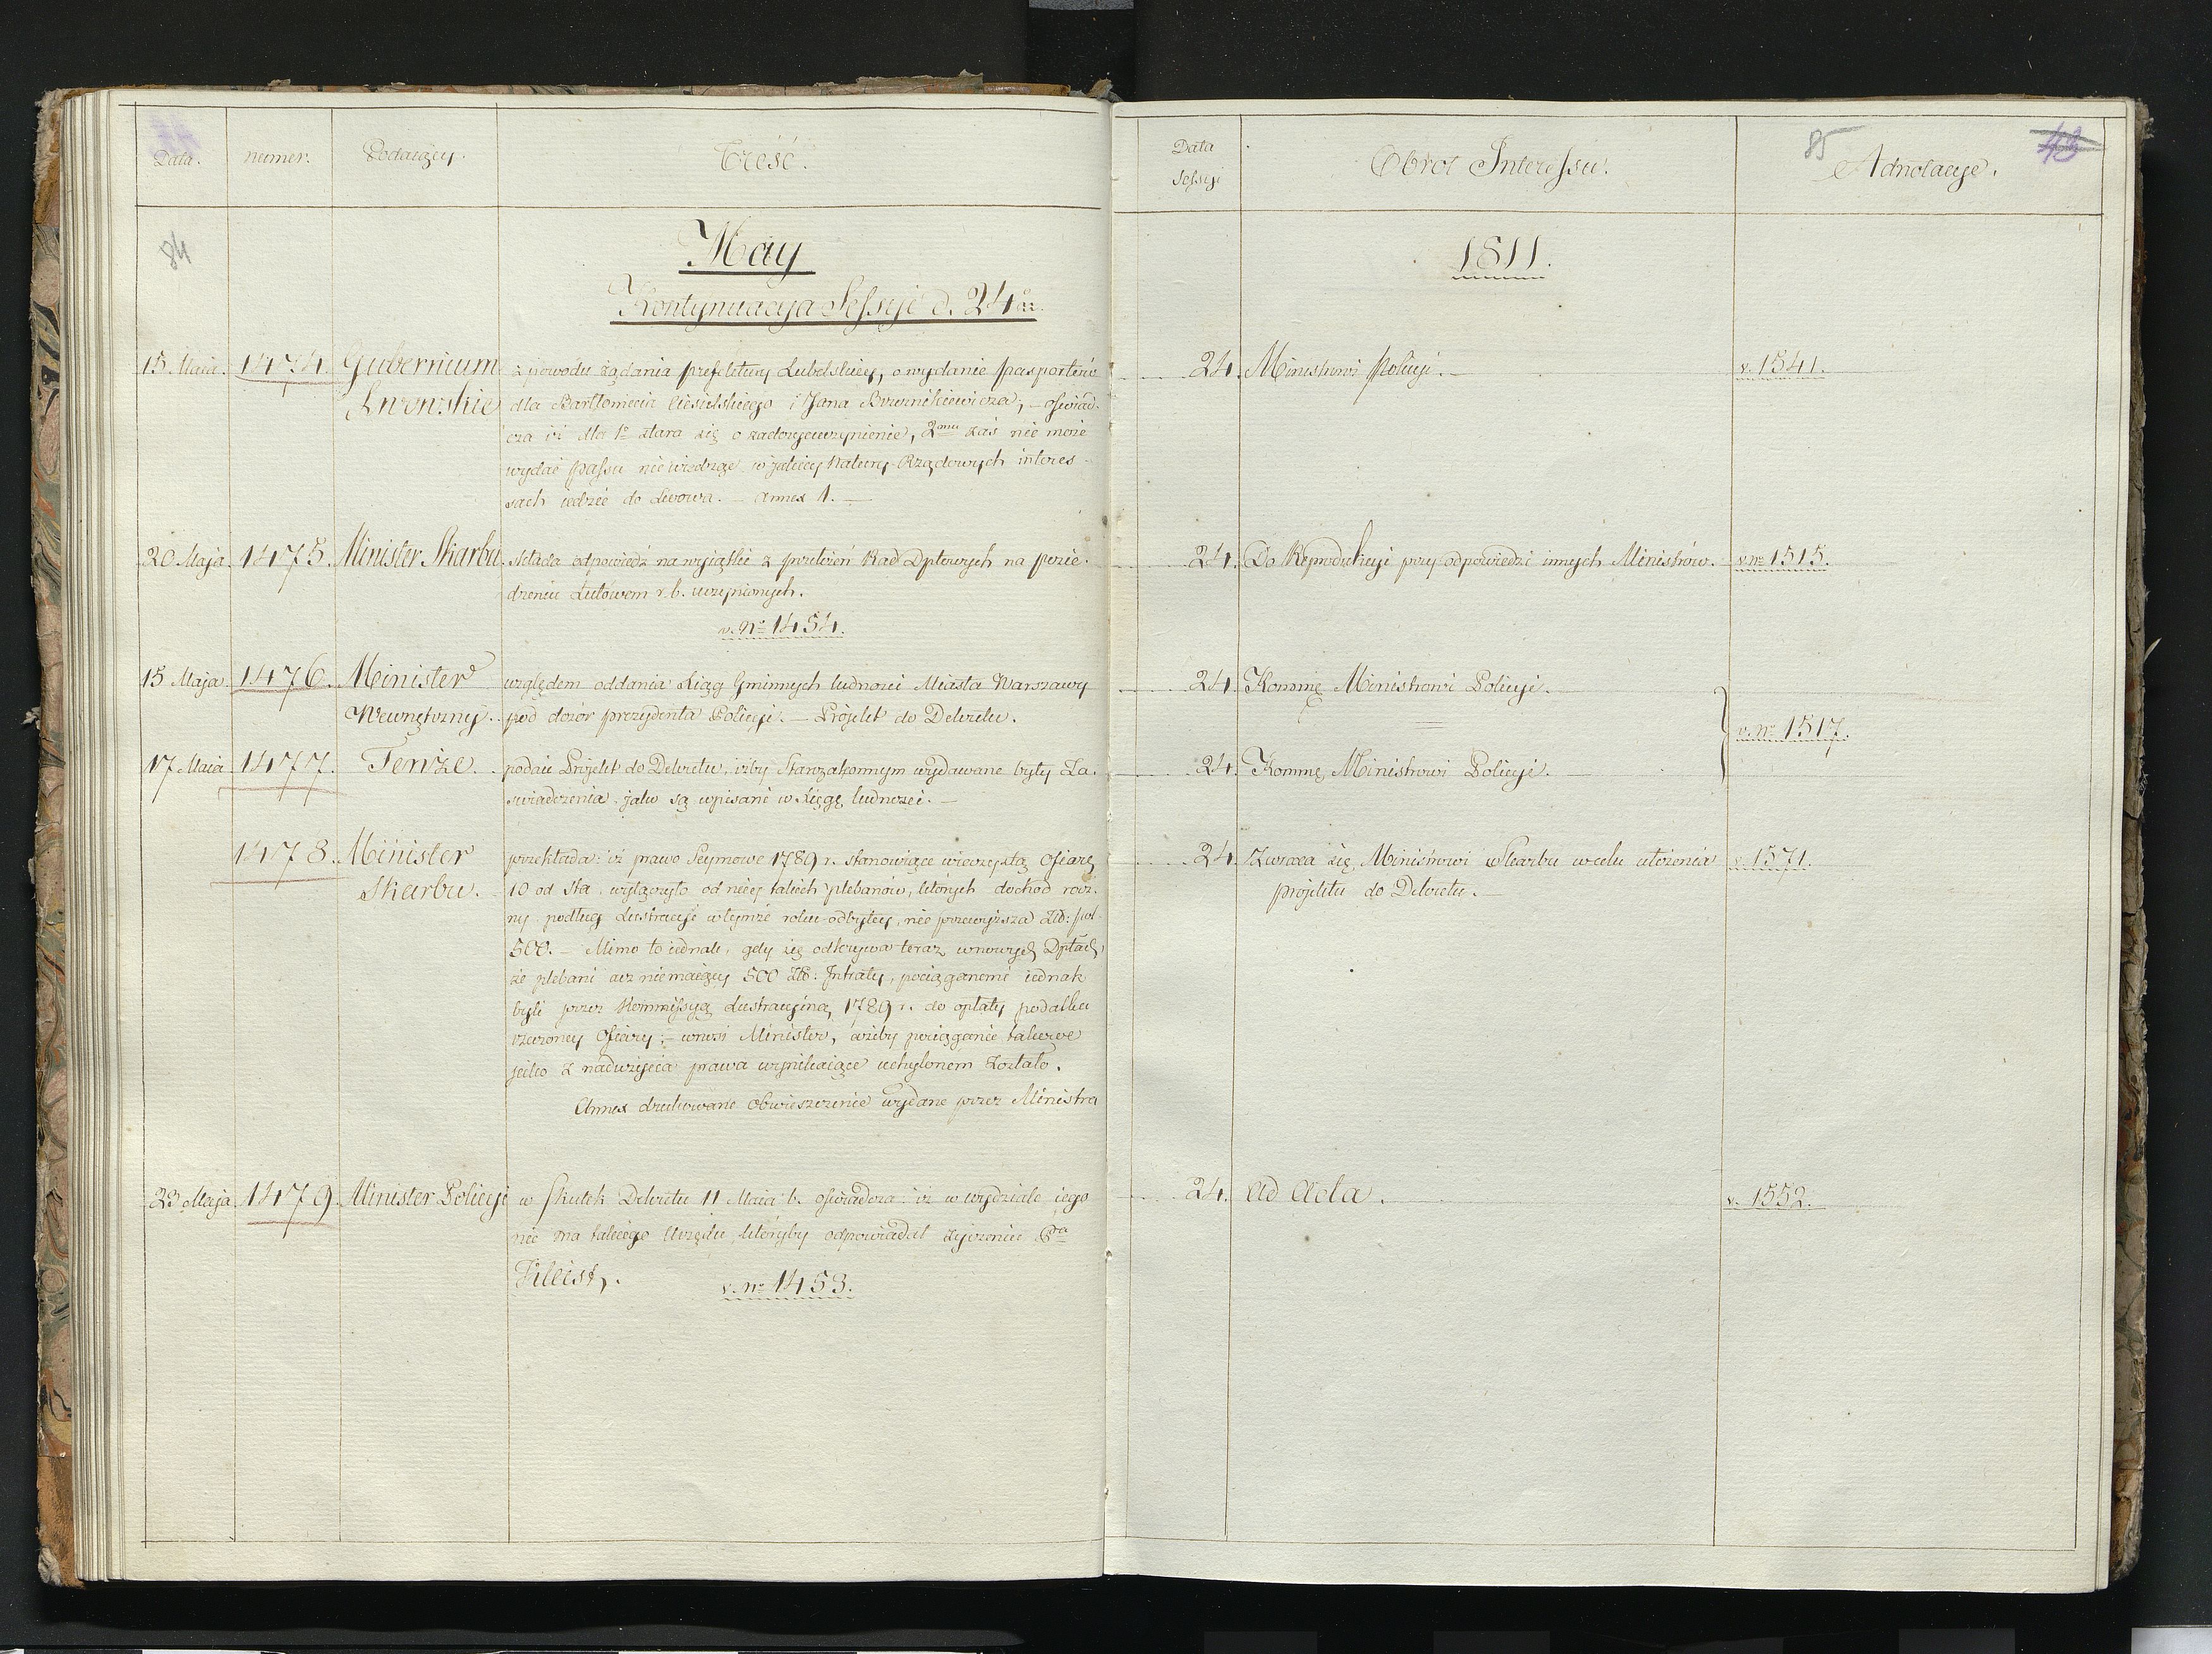 Data.
numer.
Podaiący.
Treść.
Data
Sessyi
Obrot Interessu.
85
Adnotacye.
84
May
1811.
Kontynuacya Sessyi d. 24
15 Maia. 1474. Gubernium z powodu żądania prefektury Lubelskiey, o wydanie pasportów
Lwowskie dla Bartłomieia Ciesielskiego i Jana ; – oświad-
cza iż dla 1º stara się o zadosyćuczynienie, 2mu zaś nie może
wydać passu nie wiedząc w jakiey natury Rządowych interes-
sach iedzie do Lwowa. – annex 1. –
24. Ministrowi Policyi. –
v. 1541.
20 Maja 1475. Minister Skarbu. składa odpowiedź na wyiątki z przełożeń Rad Dptowych na posie-
dzeniu Lutowem r. b. uczynionych.
v. Nº 1454.
24. Do Reprodukcyi przy odpowiedzi innych Ministrów.
v. nº 1515.
15 Maja. 1476. Minister względem oddania Xiąg Gminnych ludności Miasta Warszawy
Wewnętrzny. pod dozór prezydenta Policyi. – Projekt do Dekretu.
24. Kommę Ministrowi Policyi.
v. Nº 1517.
17 Maia 1477. Tenże. podaie Projekt do Dekretu, iżby Starozakonnym wydawane były Za-
świadczenia jako są wpisani w Xięgę ludności. –
24. Kommę Ministrowi Policyi.
1478. Minister przekłada: iż prawo Seymowe 1789 r. stanowiące wieczystą Ofiarę
Skarbu. 10 od sta, wyłączyło od niey takich plebanów, których dochod rocz-
ny podług Lustracyi w tymże roku odbytey, nie przewyższa Zł: pol
500. – Mimo to iednak, gdy się odkrywa teraz w nowych Dptach,
że plebani acz niemaiący 500 Zł: Intraty, pociąganemi iednak
byli przez Kommissyą Lustracyiną 1789 r. do opłaty podatku
rzeczoney Ofiary; – wnosi Minister, ażeby pociąganie takowe
jako z nadużycia prawa wynikaiące uchylonem zostało.
Annex drukowane obwieszczenie wydane przez Ministra
24. Zwraca się Ministrowi Skarbu w celu ułożenia
projektu do Dekretu. –
v. 1571.
23 Maja 1479. Minister Policyi w skutek Dekretu 11 Maia b. oświadcza: iż w wydziale iego
nie ma takiego Urzędu, któryby odpowiadał życzeniu
v. nº 1453.
24. Ad Acta.
v. 1552.